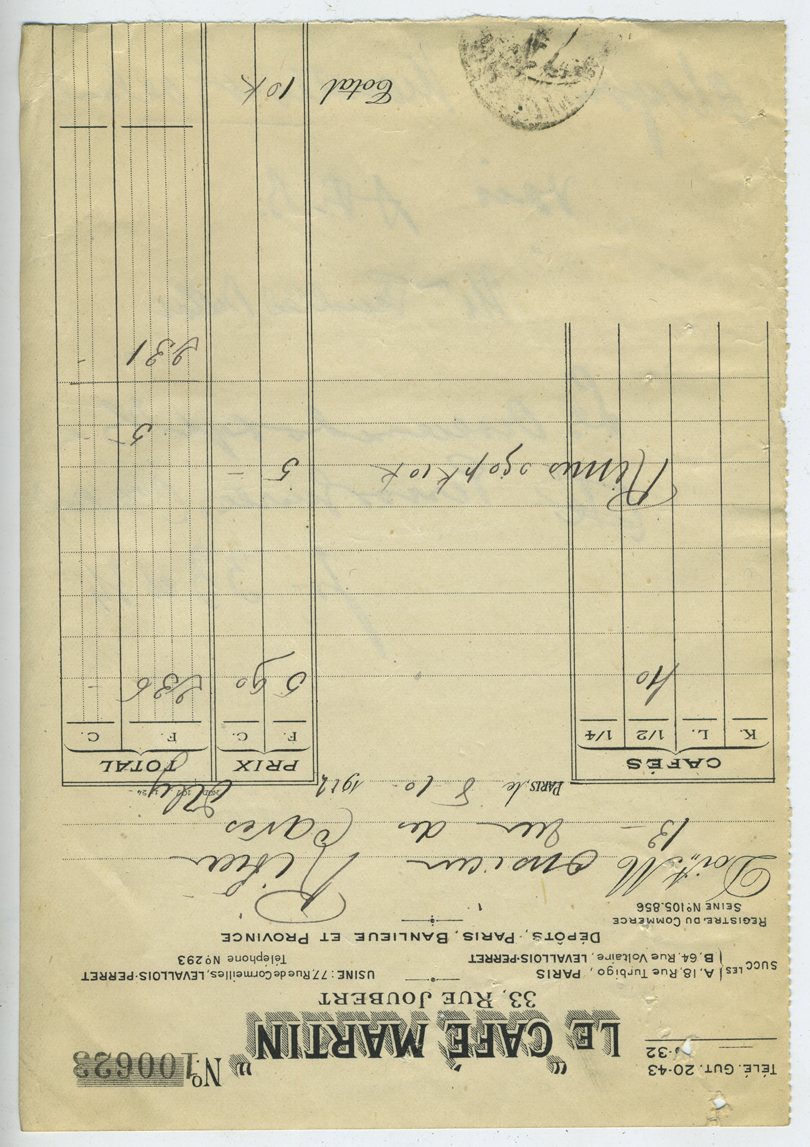 TÉLÉ. GUT. 20-43
-32
"LE CAFÉ MARTIN"
Nº 100623
33, RUE JOUBERT
SUCCLES A. 18, Rue Turbigo, PARIS
B. 64, Rue Voltaire, LEVALLOIS-PERRET
USINE: 77, Rue de Cormeilles, LEVALLOIS-PERRET
Téléphone Nº 293
DÉPÔTS, PARIS, BANLIEUE ET PROVINCE
REGISTRE DU COMMERCE
SEINE Nº 105.856
Doit, Monsieur
13 - rue des
PARIS, le 8 10 192
CAFÉS PRIX TOTAL
K. L. 1/2 1/4 F. C. F. C.
40 5 90 236 -
5 - 5 -
231 -
Total 10k